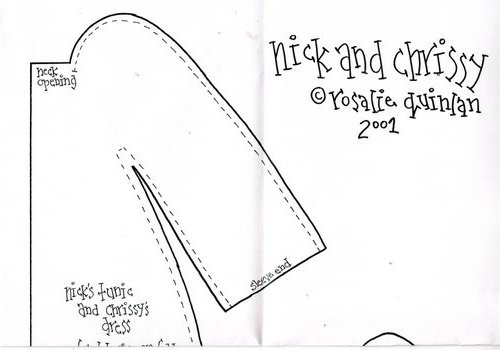 nick and chrissy
© rosalie quinlan
2001
neck
opening
sleeve end
nick's tunic
and chrissy's
dress